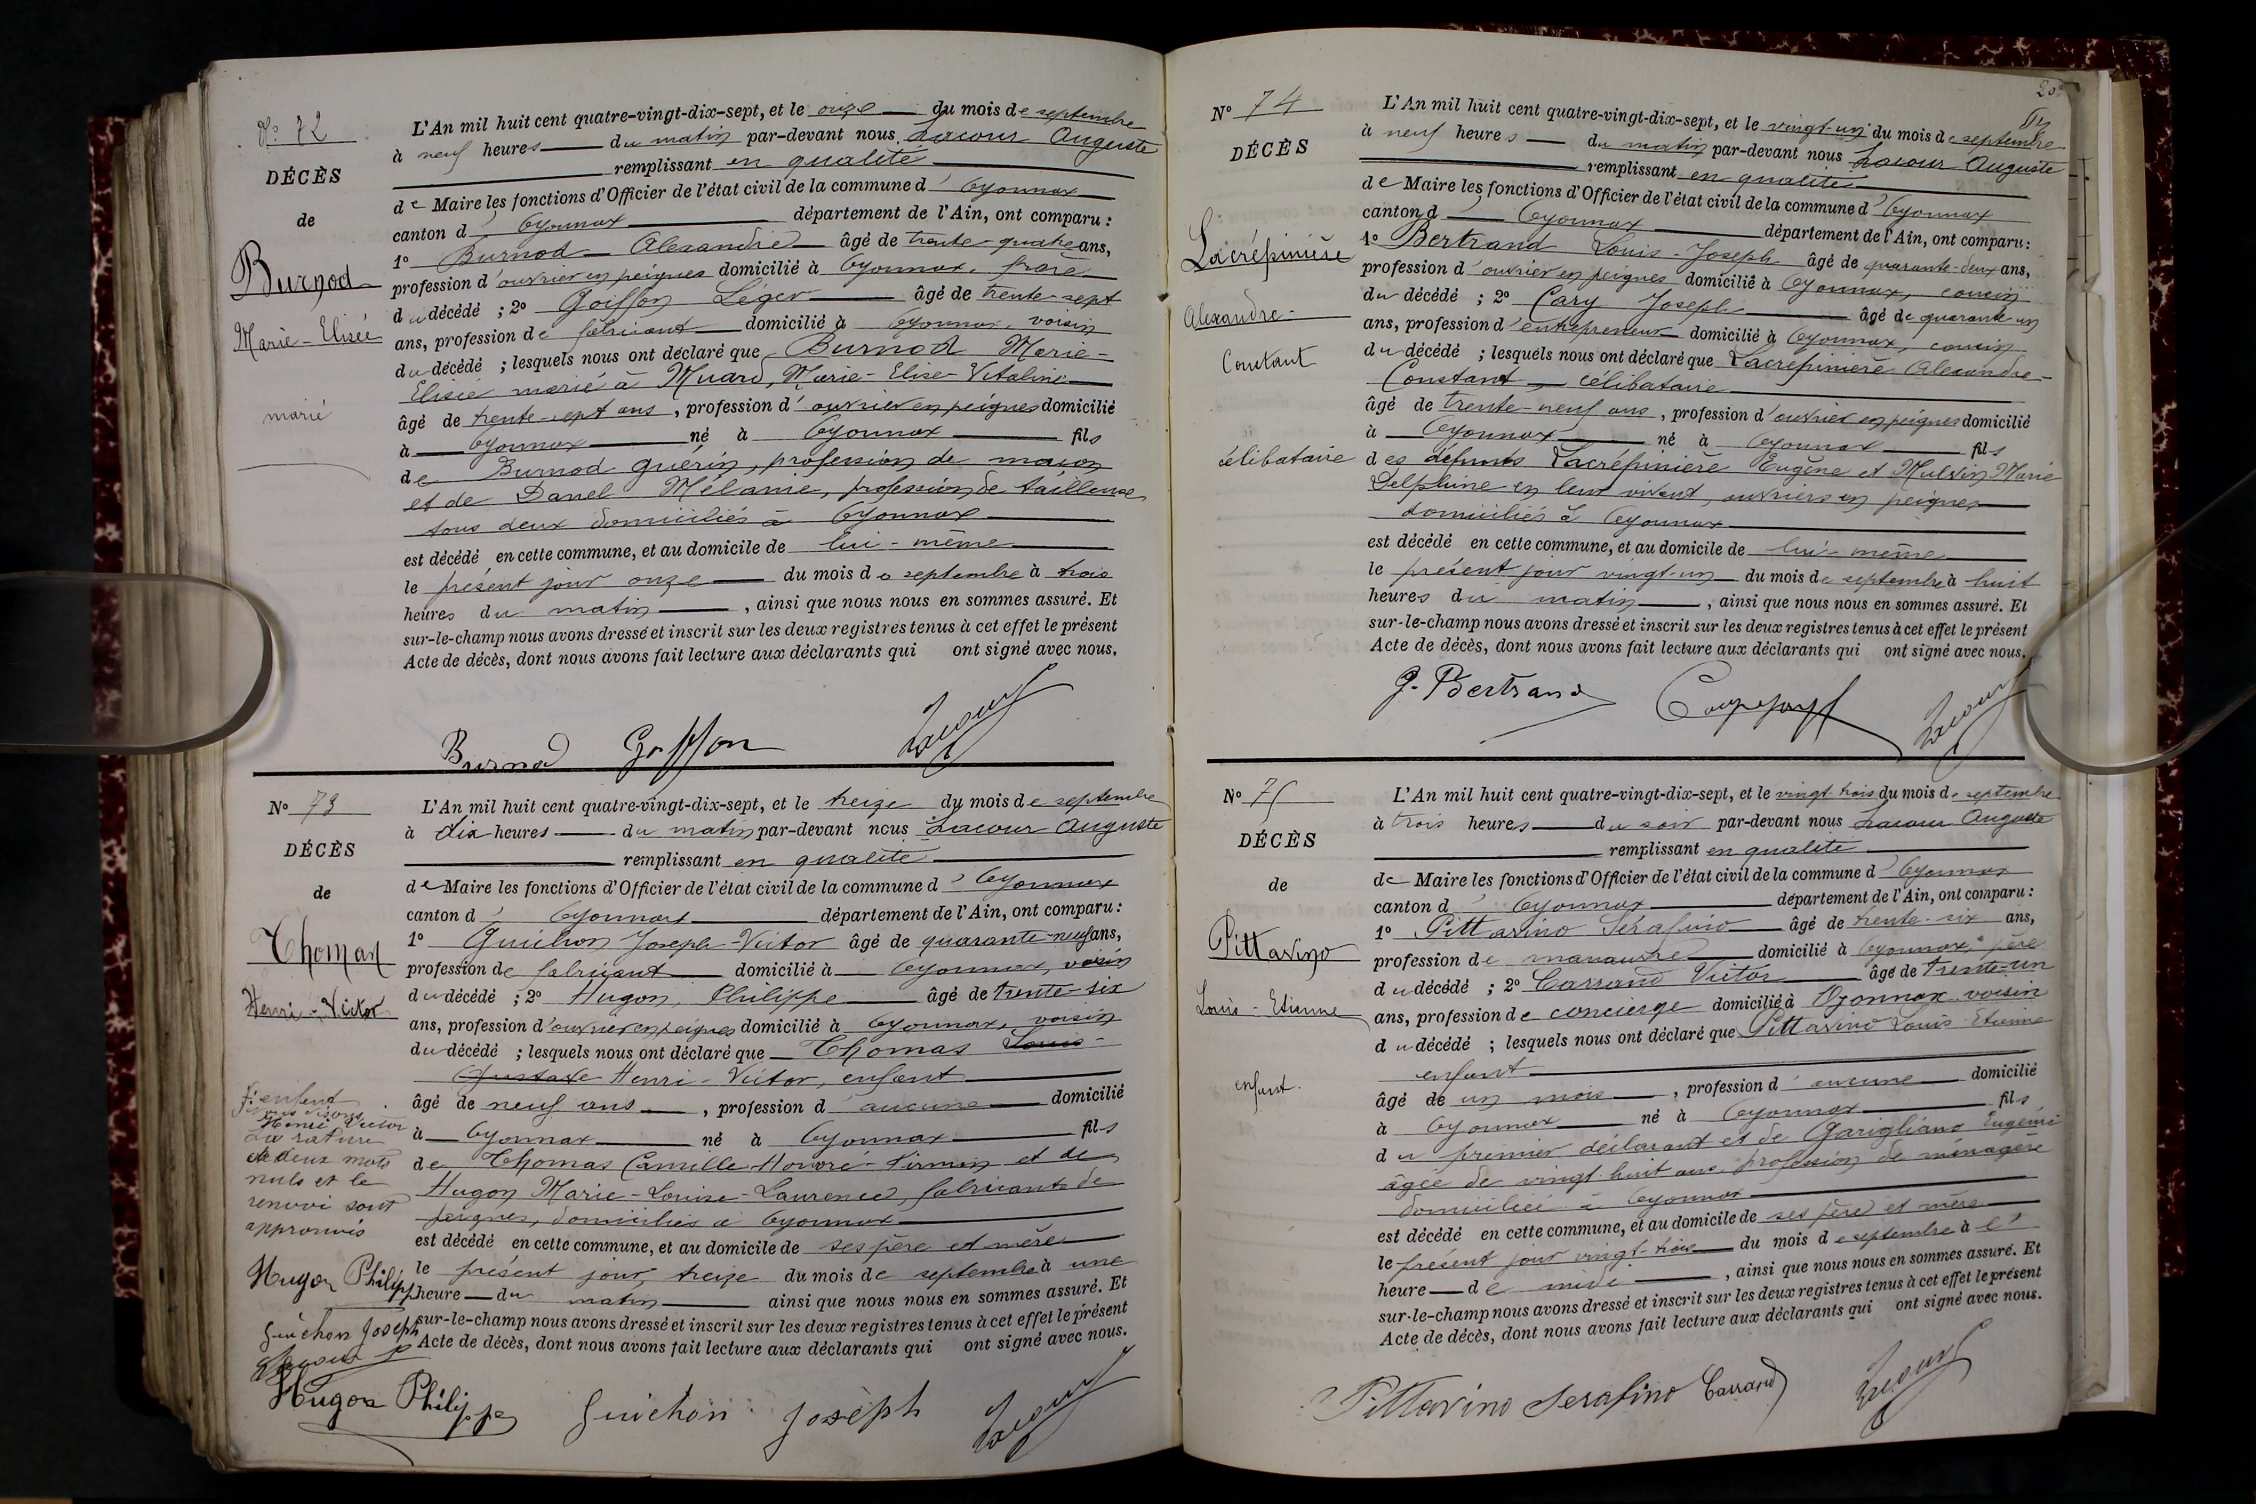 N° 72
DÉCÈS
de
Burnod
Marie-Elisée
marié
L'An mil huit cent quatre-vingt-dix-sept, et le onze du mois de septembre
à neuf heures du matin par-devant nous Lacour Auguste
remplissant en qualité
de Maire les fonctions d'Officier de l'état civil de la commune d'Oyonnax
canton d'Oyonnax département de l'Ain, ont comparu :
1° Burnod Alexandre âgé de trente-quatre ans,
profession d'ouvrier en peignes domicilié à Oyonnax, frère
du décédé ; 2° Goiffon Léger âgé de trente-sept
ans, profession de fabricant domicilié à Oyonnax, voisin
du décédé ; lesquels nous ont déclaré que Burnod Marie-
Elisée marié à Muard, Marie-Elise-Vitaline
âgé de trente-sept ans, profession d'ouvrier en peignes domicilié
à Oyonnax né à Oyonnax fils
de Burnod Guérin, profession de maçon
et de Danel Mélanie, profession de tailleuse
tous deux domiciliés à Oyonnax
est décédé en cette commune, et au domicile de lui-même
le présent jour onze du mois de septembre à trois
heures du matin, ainsi que nous nous en sommes assuré. Et
sur-le-champ nous avons dressé et inscrit sur les deux registres tenus à cet effet le présent
Acte de décès, dont nous avons fait lecture aux déclarants qui ont signé avec nous.
Burnod Goiffon Lacour
N° 73
DÉCÈS
de
Thomas
Henri-Victor
enfant
nous disons
Henri Victor
La rature
de deux mots
nuls et le
renvoi sont
approuvés
Hugon Philippe
Guichon Joseph
Lacour
L'An mil huit cent quatre-vingt-dix-sept, et le treize du mois de septembre
à dix heures du matin par-devant nous Lacour Auguste
remplissant en qualité
de Maire les fonctions d'Officier de l'état civil de la commune d'Oyonnax
canton d'Oyonnax département de l'Ain, ont comparu :
1° Guichon Joseph-Victor âgé de quarante-neuf ans,
profession de fabricant domicilié à Oyonnax, voisin
du décédé ; 2° Hugon Philippe âgé de trente-six
ans, profession d'ouvrier en peignes domicilié à Oyonnax, voisin
du décédé ; lesquels nous ont déclaré que Thomas Louis-
Gustave Henri-Victor, enfant
âgé de neuf ans, profession d'aucune domicilié
à Oyonnax né à Oyonnax fils
de Thomas Camille-Honoré-Firmin et de
Hugon Marie-Louise-Laurence, fabricants de
peignes, domiciliés à Oyonnax
est décédé en cette commune, et au domicile de ses père et mère
le présent jour, treize du mois de septembre à une
heure du matin ainsi que nous nous en sommes assuré. Et
sur-le-champ nous avons dressé et inscrit sur les deux registres tenus à cet effet le présent
Acte de décès, dont nous avons fait lecture aux déclarants qui ont signé avec nous.
Hugon Philippe Guichon Joseph Lacour
N° 74
DÉCÈS
Lacrépinière
Alexandre-
Constant
célibataire
L'An mil huit cent quatre-vingt-dix-sept, et le vingt-un du mois de septembre
à neuf heures du matin par-devant nous Lacour Auguste
remplissant en qualité
de Maire les fonctions d'Officier de l'état civil de la commune d'Oyonnax
canton d'Oyonnax département de l'Ain, ont comparu :
1° Bertrand Louis-Joseph âgé de quarante-deux ans,
profession d'ouvrier en peignes domicilié à Oyonnax, cousin
du décédé ; 2° Cary Joseph âgé de quarante-un
ans, profession d'entrepreneur domicilié à Oyonnax, cousin
du décédé ; lesquels nous ont déclaré que Lacrépinière Alexandre-
Constant, célibataire
âgé de trente-neuf ans, profession d'ouvrier en peignes domicilié
à Oyonnax né à Oyonnax fils
des défunts Lacrépinière Eugène et Marie
Delphine en leur vivant, ouvriers en peignes
domiciliés à Oyonnax
est décédé en cette commune, et au domicile de lui-même
le présent jour vingt-un du mois de septembre à huit
heures du matin, ainsi que nous nous en sommes assuré. Et
sur-le-champ nous avons dressé et inscrit sur les deux registres tenus à cet effet le présent
Acte de décès, dont nous avons fait lecture aux déclarants qui ont signé avec nous.
J. Bertrand Lacour
N° 75
DÉCÈS
de
Pittavino
Louis-Etienne
enfant.
L'An mil huit cent quatre-vingt-dix-sept, et le vingt trois du mois de septembre
à trois heures du soir par-devant nous Lacour Auguste
remplissant en qualité
de Maire les fonctions d'Officier de l'état civil de la commune d'Oyonnax
canton d'Oyonnax département de l'Ain, ont comparu :
1° Pittavino Sérafino âgé de trente-six ans,
profession de manœuvre domicilié à Oyonnax père
du décédé ; 2° Carrand Victor âgé de trente-un
ans, profession de concierge domicilié à Oyonnax voisin
du décédé ; lesquels nous ont déclaré que Pittavino Louis Etienne
enfant
âgé de un mois, profession d'aucune domicilié
à Oyonnax né à Oyonnax fils
du premier déclarant et de Garigliano Eugénie
âgée de vingt-huit ans profession de ménagère
domiciliée à Oyonnax
est décédé en cette commune, et au domicile de ses père et mère
le présent jour vingt-trois du mois de septembre à l'
heure de midi, ainsi que nous nous en sommes assuré. Et
sur-le-champ nous avons dressé et inscrit sur les deux registres tenus à cet effet le présent
Acte de décès, dont nous avons fait lecture aux déclarants qui ont signé avec nous.
Pittavino Serafino Carrand Lacour